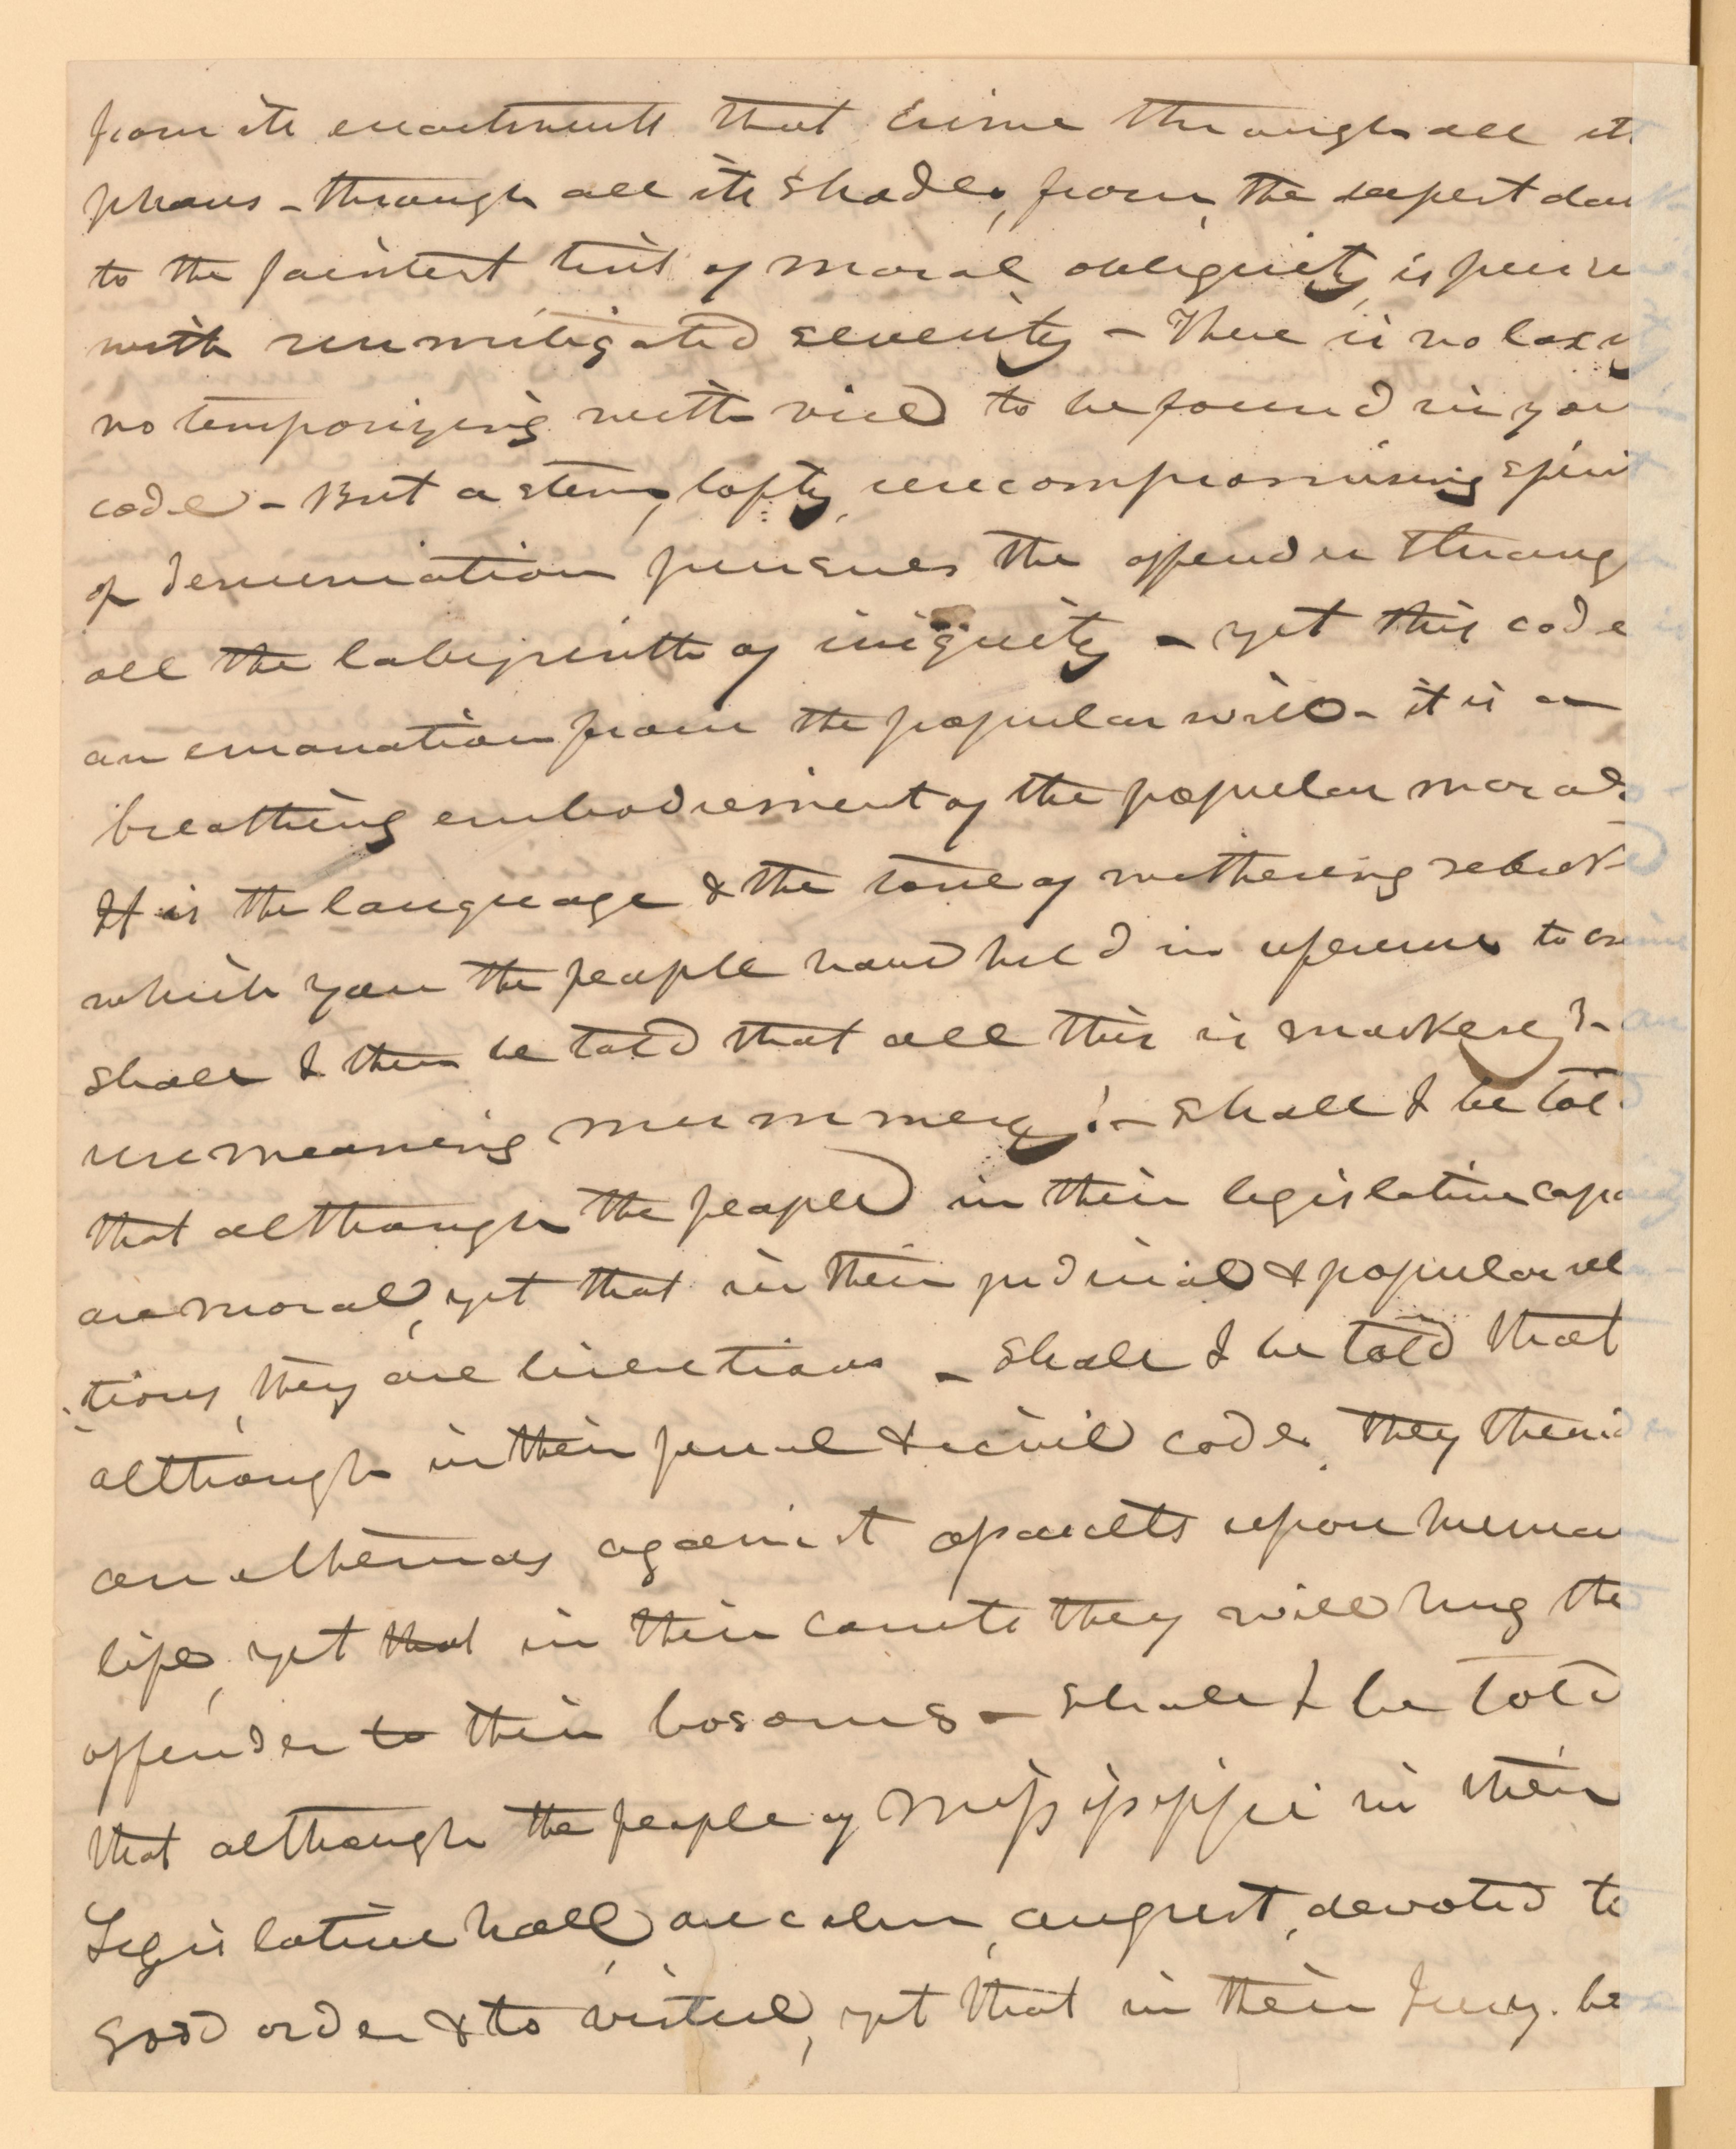 from its enactments that crime through all its
phases - through all its shades, from, the deepest dam
to the faintest tint of moral obliquity, is punis
with unmitigated severity - There is no laxity
no temporizing with vice to be found in your
code - But a stern, lofty, uncompromising spirit
of denunciation pursues the offender throug
all the labyrinth of iniquity - yet this code
an emanation from the popular will - it is a
breathing embodiement of the popular morals
It is the language & the tone of withering rebuk
which you the people have held in reference to crime
shall I then be told that all this is mockery? -
unmeaning mummery! - shall I be told
that although the people in their legislative capa
are moral, yet that in their judicial & popular rel
tions, they are licentious - Shall I be told that
although in their penal & civil code, they
anathemas against assaults upon human
life, yet that in their courts they will hug the
offender to their bosoms - shall I be told
that although the people of Mississippi in their
Legislative hall, are calm, august, devoted to
good order & to virtue, yet that in their Jury. bo